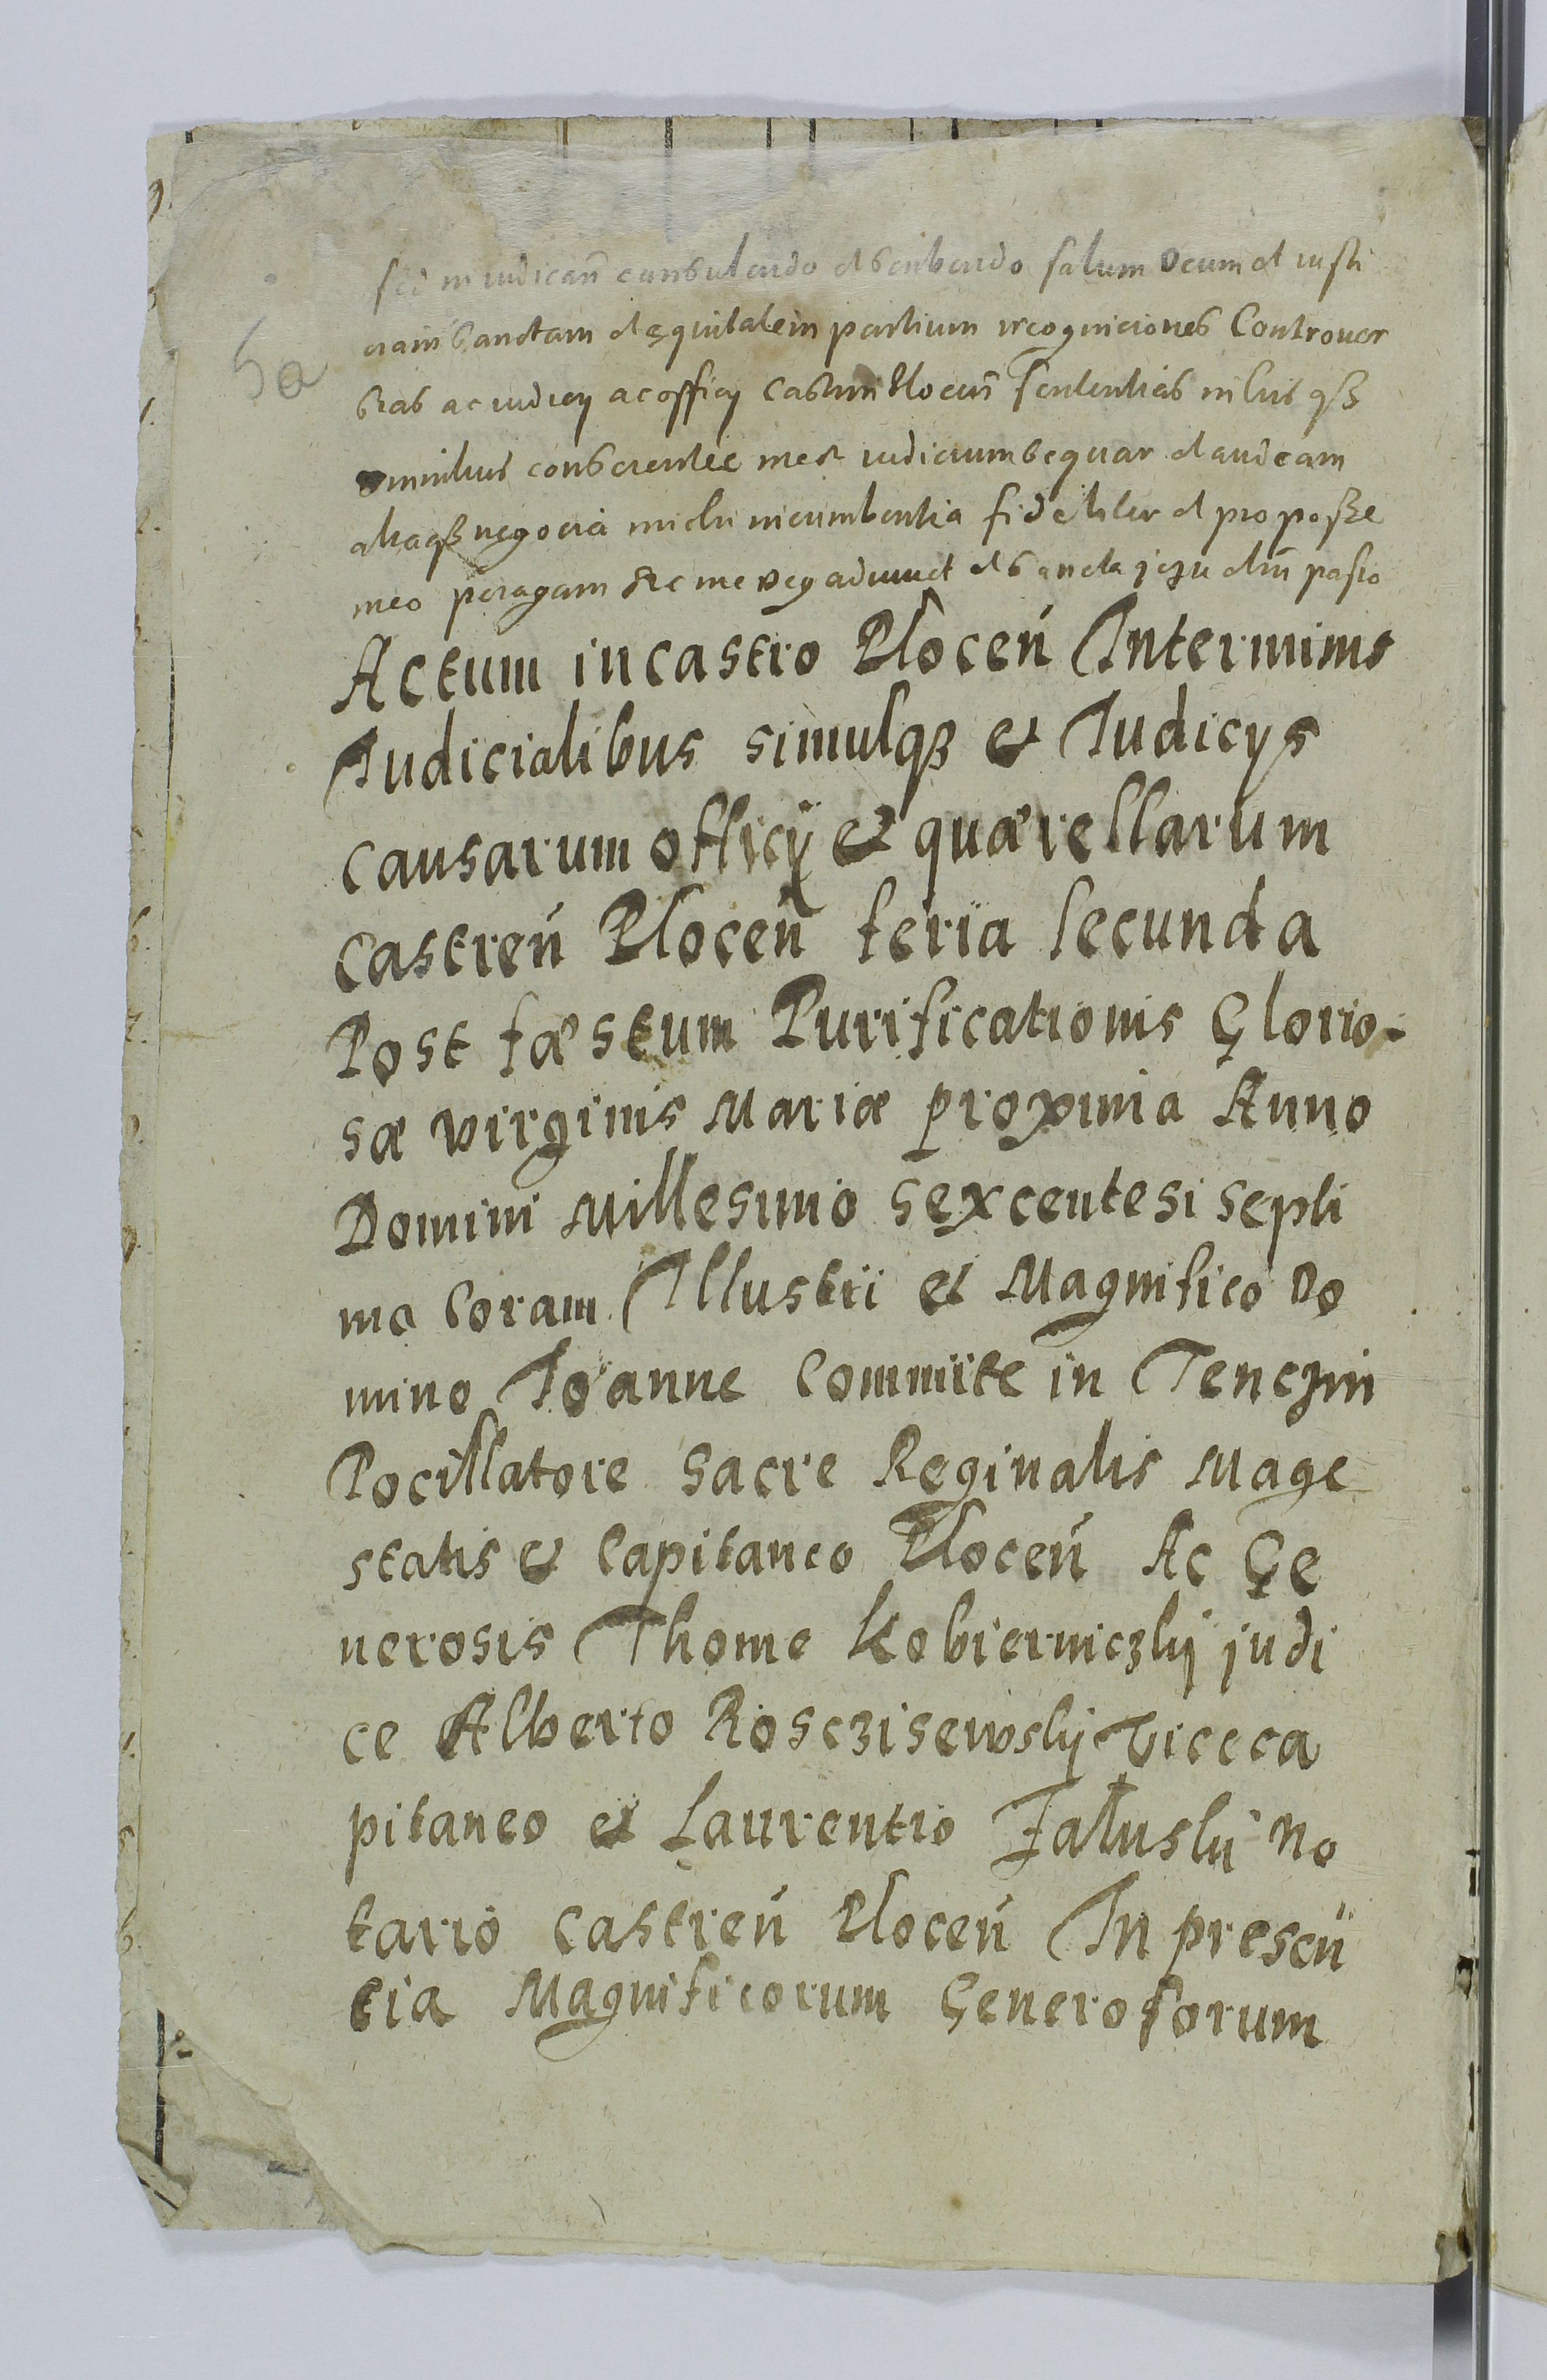 5a
sed in iudicañ consulendo et scribendo solum Deum et iusti
ciam sanctam et ęquitatem partium recogniciones Controver
sias ac iudicy ac officy Castren Plocen̄ Sententias in his qȝ
omnibus conscientie meę iudicium sequar et audeam
aliaqȝ negocia michi incumbentia fideliter et pro posse
meo peragam sic me Deq adiuvet et sancta jezu chr̄i pasio
Actum in castro Plocen̄ In terminis
Judicialibus simulqȝ et Judicys
causarum officÿ et quærellarum
castren̄ Plocen̄ feria secunda
Post fæstum Purificationis Glorio-
sæ virginis Mariæ proxima Anno
Domini Millesimo sexcentesi septi
mo Coram Illustri et Magnifico Do
mino Joanne Commite in Tenczin
Pocillatore sacre Reginalis Mage
statis et Capitaneo Plocen̄ Ac Ge
nerosis Thome Kobierniczkj judi
ce Alberto Rosczisewskj Viceca
pitaneo et Laurentio Załuskj No
tario castren̄ Plocen̄ In presen̄
tia Magnificorum Generosorum